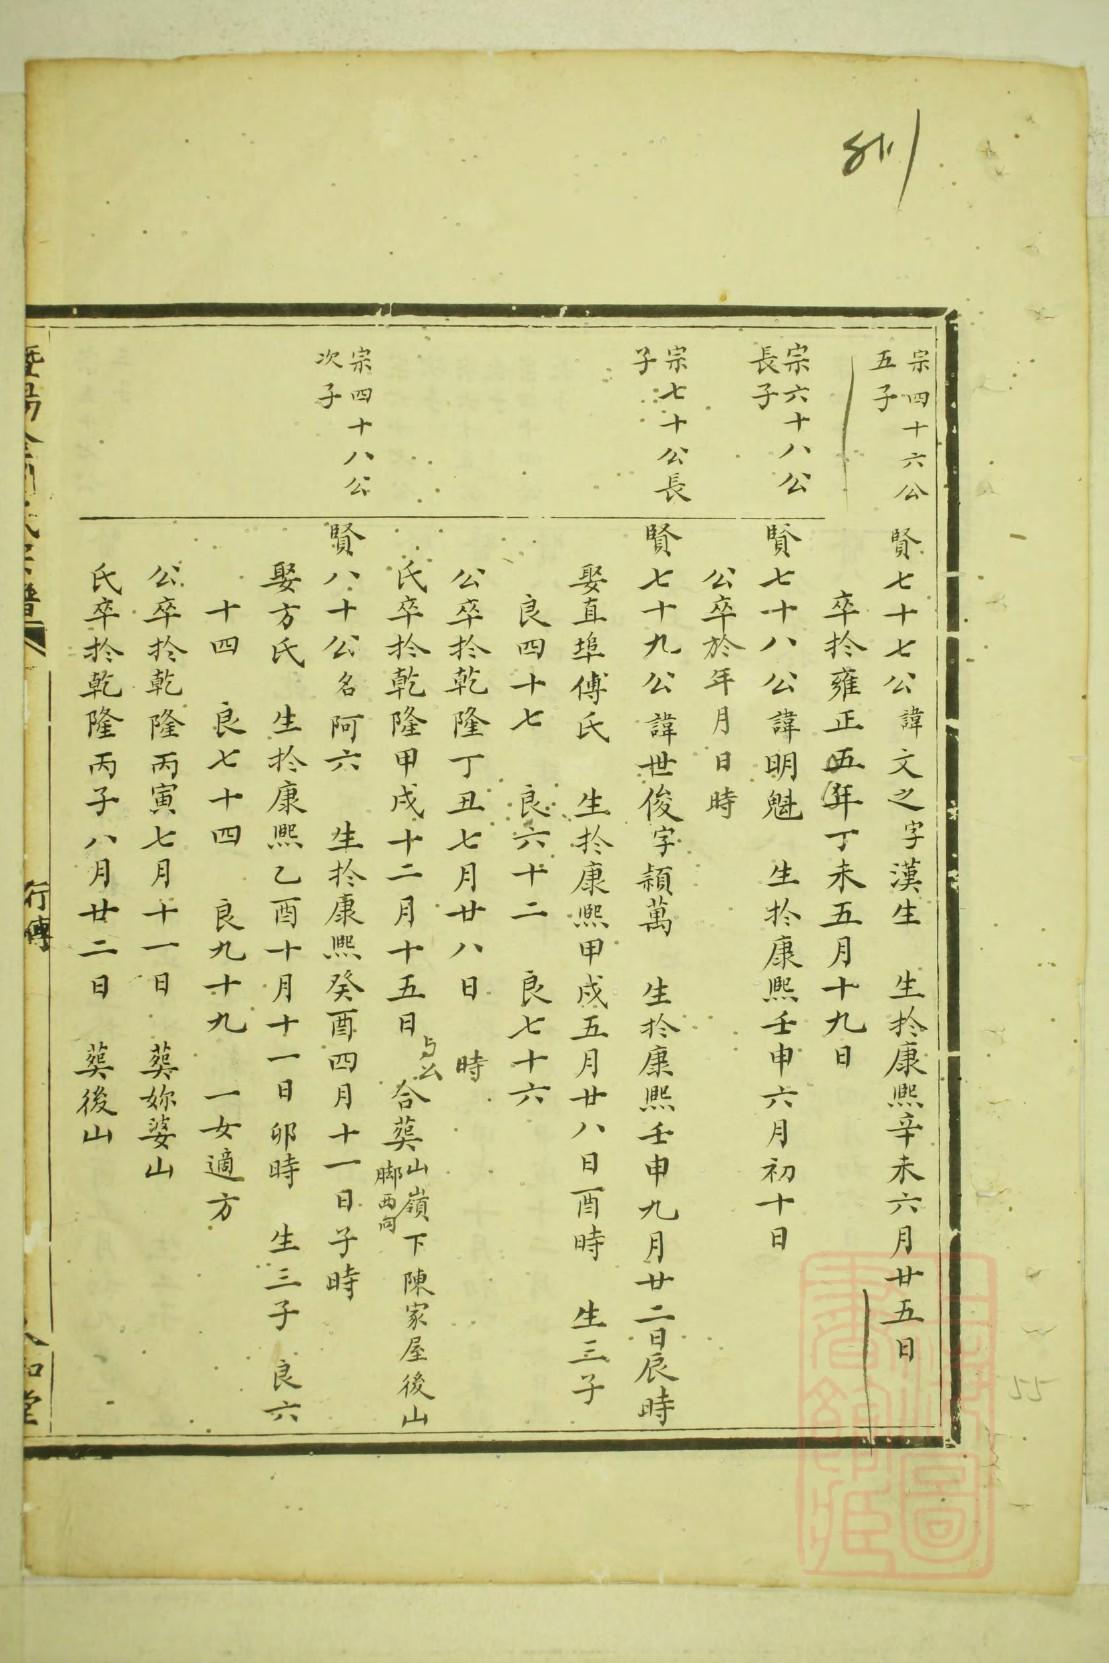 宗四十六公
五子
賢七十七公諱文之字漢生　生於康熙辛未六月廿五日
卒於雍正五年丁未五月十九日
宗六十八公
長子
賢七十八公諱明魁　生於康熙壬申六月初十日
公卒於年月日時
宗七十公長
子
賢七十九公諱世俊字穎萬　生於康熙壬申九月廿二日辰時
娶直埠傅氏　生於康熙甲戌五月廿八日酉時　生三子
良四十七　良六十二　良七十六
公卒於乾隆丁丑七月廿八日　時
氏卒於乾隆甲戌十二月十五日与公合葬山嶺下陳家屋後山
脚西向
宗四十八公
次子
賢八十公名阿六　生於康熙癸酉四月十一日子時
娶方氏　生於康熙乙酉十月十一日卯時　生三子　良六
十四　良七十四　良九十九　一女適方
公卒於乾隆丙寅七月十一日　葬妳婆山
氏卒於乾隆丙子八月廿二日　葬後山
行傳